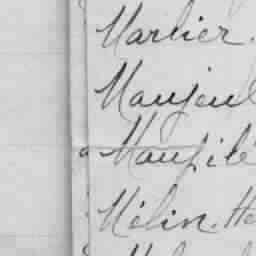 Marlier.
Maujeul
Maupilé
Mélin. He